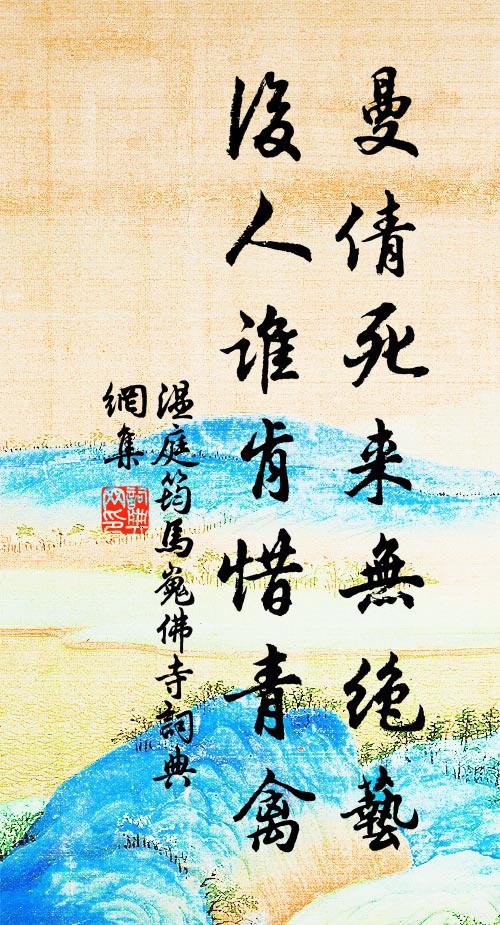 曼倩死来無绝藝
後人谁肯惜青禽
温庭筠馬嵬佛寺詞典
網集
詞典
网印